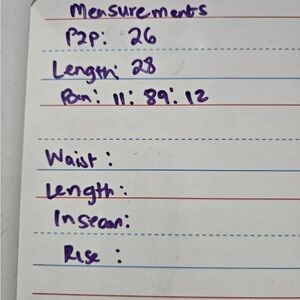 Measurements
P2P: 26
Length: 28
11: 89: 12
Waist:
Length:
Inseam:
Rise: